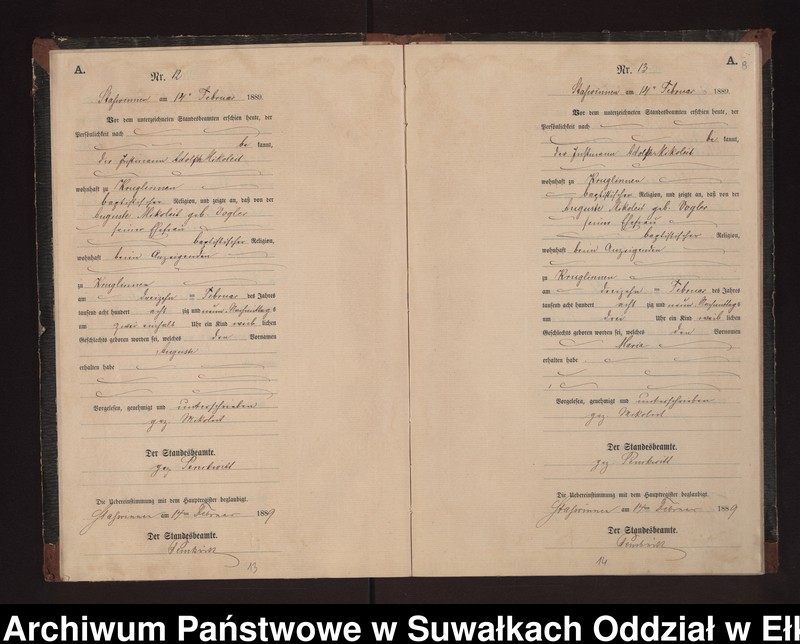 A.
Nr. 12
am 14ten Februar 1889.
Vor dem unterzeichneten Standesbeamten erschien heute, der
Persönlichkeit nach
be kannt,
der Instmann Adolph Mikoleit
wohnhaft zu Kruglinnen
baptistischer Religion, und zeigte an, daß von der
Auguste Mikoleit geb. Vogler
seiner Ehefrau
baptistischer Religion,
wohnhaft beim Anzeigenden
zu Kruglinnen
am dreizehn ten Februar des Jahres
tausend acht hundert acht zig und neun Nachmittags
um zwei einhalb Uhr ein Kind weib lichen
Geschlechts geboren worden sei, welches den Vornamen
Auguste
erhalten habe
Vorgelesen, genehmigt und unterschrieben
gez. Mikoleit
Der Standesbeamte.
gez.
Die Uebereinstimmung mit dem Hauptregister beglaubigt.
am 14ten Februar 1889
Der Standesbeamte.
13
A.
8
Nr. 13
am 14ten Februar 1889.
Vor dem unterzeichneten Standesbeamten erschien heute, der
Persönlichkeit nach
be kannt,
der Instmann Adolph Mikoleit
wohnhaft zu Kruglinnen
baptistischer Religion, und zeigte an, daß von der
Auguste Mikoleit geb. Vogler
seine Ehefrau
baptistischer Religion,
wohnhaft beim Anzeigenden
zu Kruglinnen
am dreizehn ten Februar des Jahres
tausend acht hundert acht zig und neun Nachmittags
um drei Uhr ein Kind weib lichen
Geschlechts geboren worden sei, welches den Vornamen
Maria
erhalten habe
Vorgelesen, genehmigt und unterschrieben
gez. Mikoleit
Der Standesbeamte.
gez.
Die Uebereinstimmung mit dem Hauptregister beglaubigt.
am 14ten Februar 1889
Der Standesbeamte.
14
Archiwum Państwowe w Suwałkach Oddział w Eł